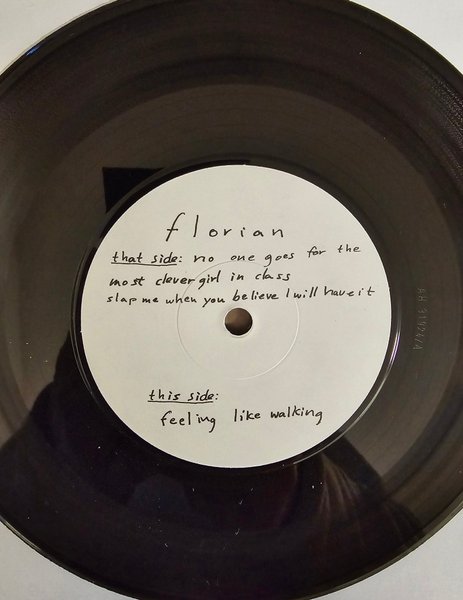 florian
that side: no one goes for the
most clever girl in class
slap me when you believe I will have it
this side:
feeling like walking